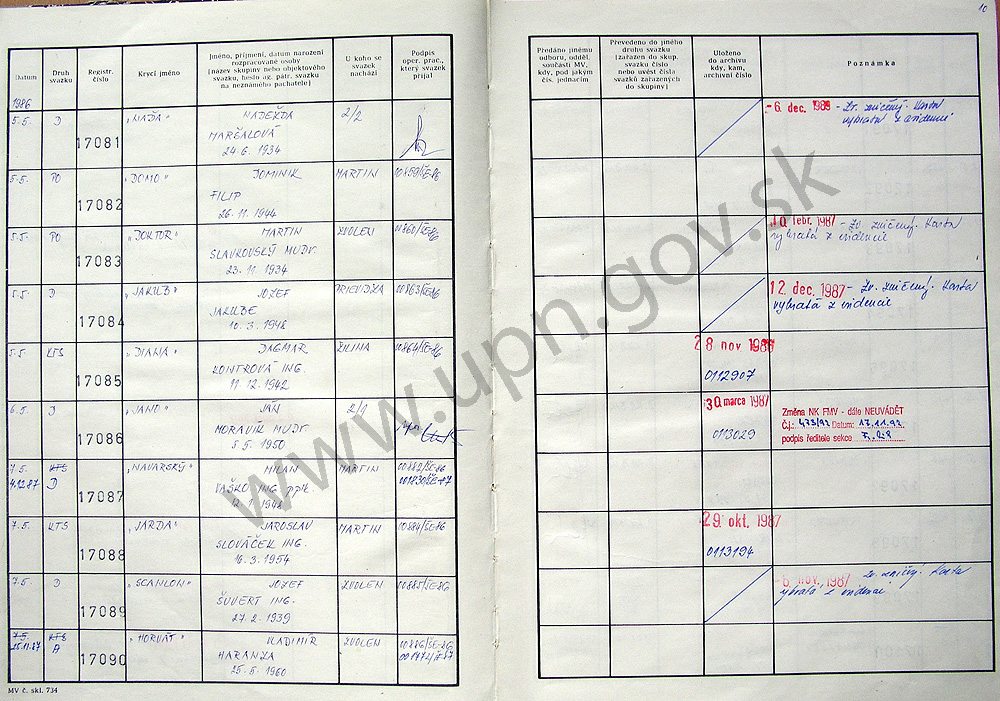 10
Datum
Druh svazku
Registr. číslo
Krycí jméno
Jméno, příjmení, datum narození rozpracované osoby (název skupiny nebo objektového svazku, heslo ag. pátr. svazku na neznámého pachatele)
U koho se svazek nachází
Podpis oper. prac., který svazek přijal
Předáno jinému odboru, odděl. součásti MV, kdy, pod jakým čís. jednacím
Převedeno do jiného druhu svazku (zařazen do skup. svazku číslo nebo uvést čísla svazků zařazených do skupiny)
Uloženo do archivu kdy, kam, archivní číslo
Poznámka
1986
5.5. D 17081 "NAĎA" NADEŽDA MARŠALOVÁ 24.6.1934 2/2
- 6. dec. 1989 - Zv. zničený. Karta vybratá z evidencie
5.5. PO 17082 "DOMO" DOMINIK FILIP 26.11.1944 MARTIN 00859/SE-86
5.5. PO 17083 "DOKTOR" MARTIN SLAVKOVSKÝ MUDr. 23.11.1934 ZVOLEN 00860/SE-86
10 febr. 1987 - Zv. zničený. Karta vybratá z evidencie
5.5. D 17084 "JAKUB" JOZEF JAKUBE 10.3.1948 PRIEVIDZA 00863/SE-86
12 dec. 1987 - Zv. zničený. Karta vybratá z evidencie
5.5. KTS 17085 "DIANA" DAGMAR KONTROVÁ ING. 11.12.1942 ŽILINA 00864/SE-86
28 nov 1986
0112907
6.5. D 17086 "JANO" JÁN MORAVÍK MUDr. 5.5.1950 2/1
30 marca 1987
0113029
Změna NK FMV - dále NEUVÁDĚT
Č.j.: 473/92 Datum: 17.11.92
podpis ředitele sekce
7.5. KTS 4.12.87 D 17087 "NAVARSKÝ" MILAN VAŠKO ING. pplk. 12.1.1942 MARTIN 00882/SE-86
7.5. KTS 17088 "JARDA" JAROSLAV SLOVÁČEK ING. 16.3.1954 MARTIN 00884/SE-86
29. okt. 1987
0113194
7.5. D 17089 "SCANLON" JOZEF ŠUVERT ING. 27.2.1939 ZVOLEN 00885/SE-86
- 6. nov. 1987 zv. zničený. Karta vybratá z evidencie
7.5. KTS 25.11.87 A 17090 "HORVÁT" VLADIMÍR HARANZA 25.5.1960 ZVOLEN 00886/SE-86
MV č. skl. 734
www.upn.gov.sk